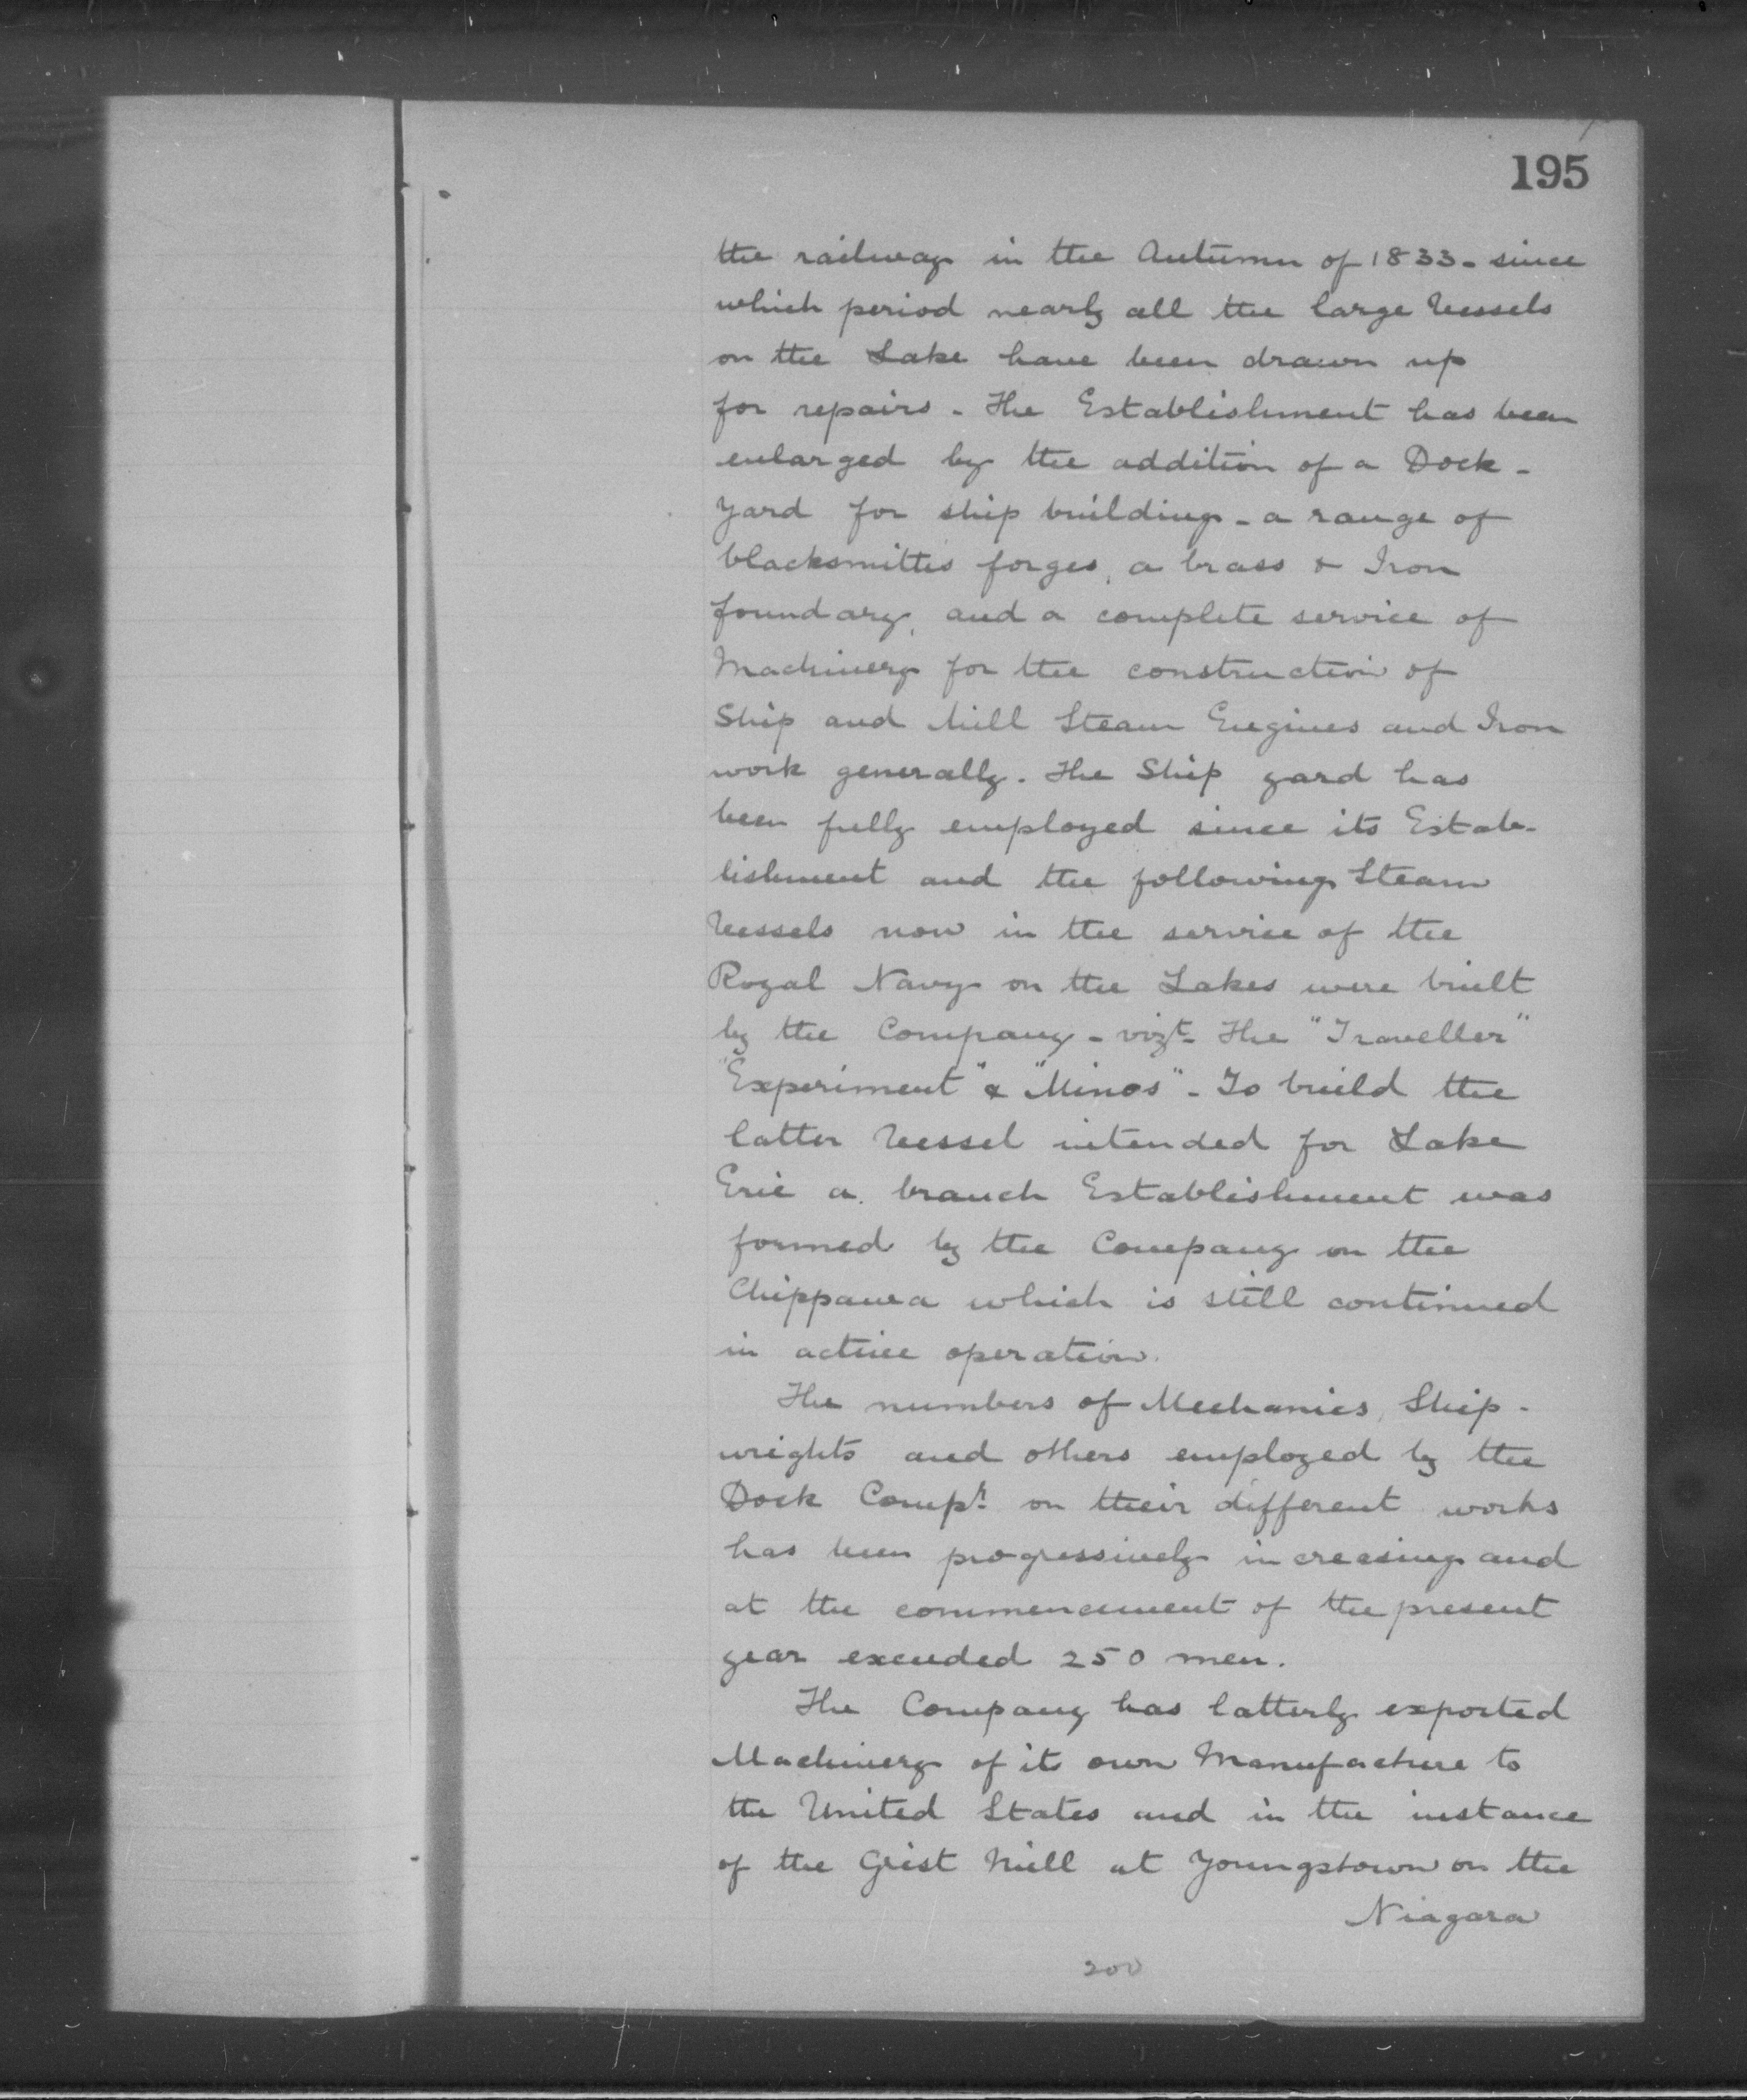 195
the railway in the Autumn of 1833 - since
which period nearly all the large Vessels
on the Lake have been drawn up
for repairs - The Establishment has been
enlarged by the addition of a Dock -
yard for ship building - a range of
blacksmiths forges, a brass & Iron
foundary, and a complete service of
Machinery for the construction of
Ship and Mill Steam Engines and Iron
work generally. The Ship yard has
been fully employed since its Estab-
lishment and the following Steam
Vessels now in the service of the
Royal Navy on the Lakes were built
by the Company - vizt The "Traveller"
"Experiment" & "Minos" - To build the
latter Vessel intended for Lake
Erie a branch Establishment was
formed by the Company on the
Chippawa which is still continued
in active operation.
The numbers of Mechanics, Ship-
wrights and others employed by the
Dock Compy on their different works
has been progressively increasing and
at the commencement of the present
year exceeded 250 men.
The Company has latterly exported
Machinery of its own Manufacture to
the United States and in the instance
of the Grist Mill at Youngstown on the
Niagara
200